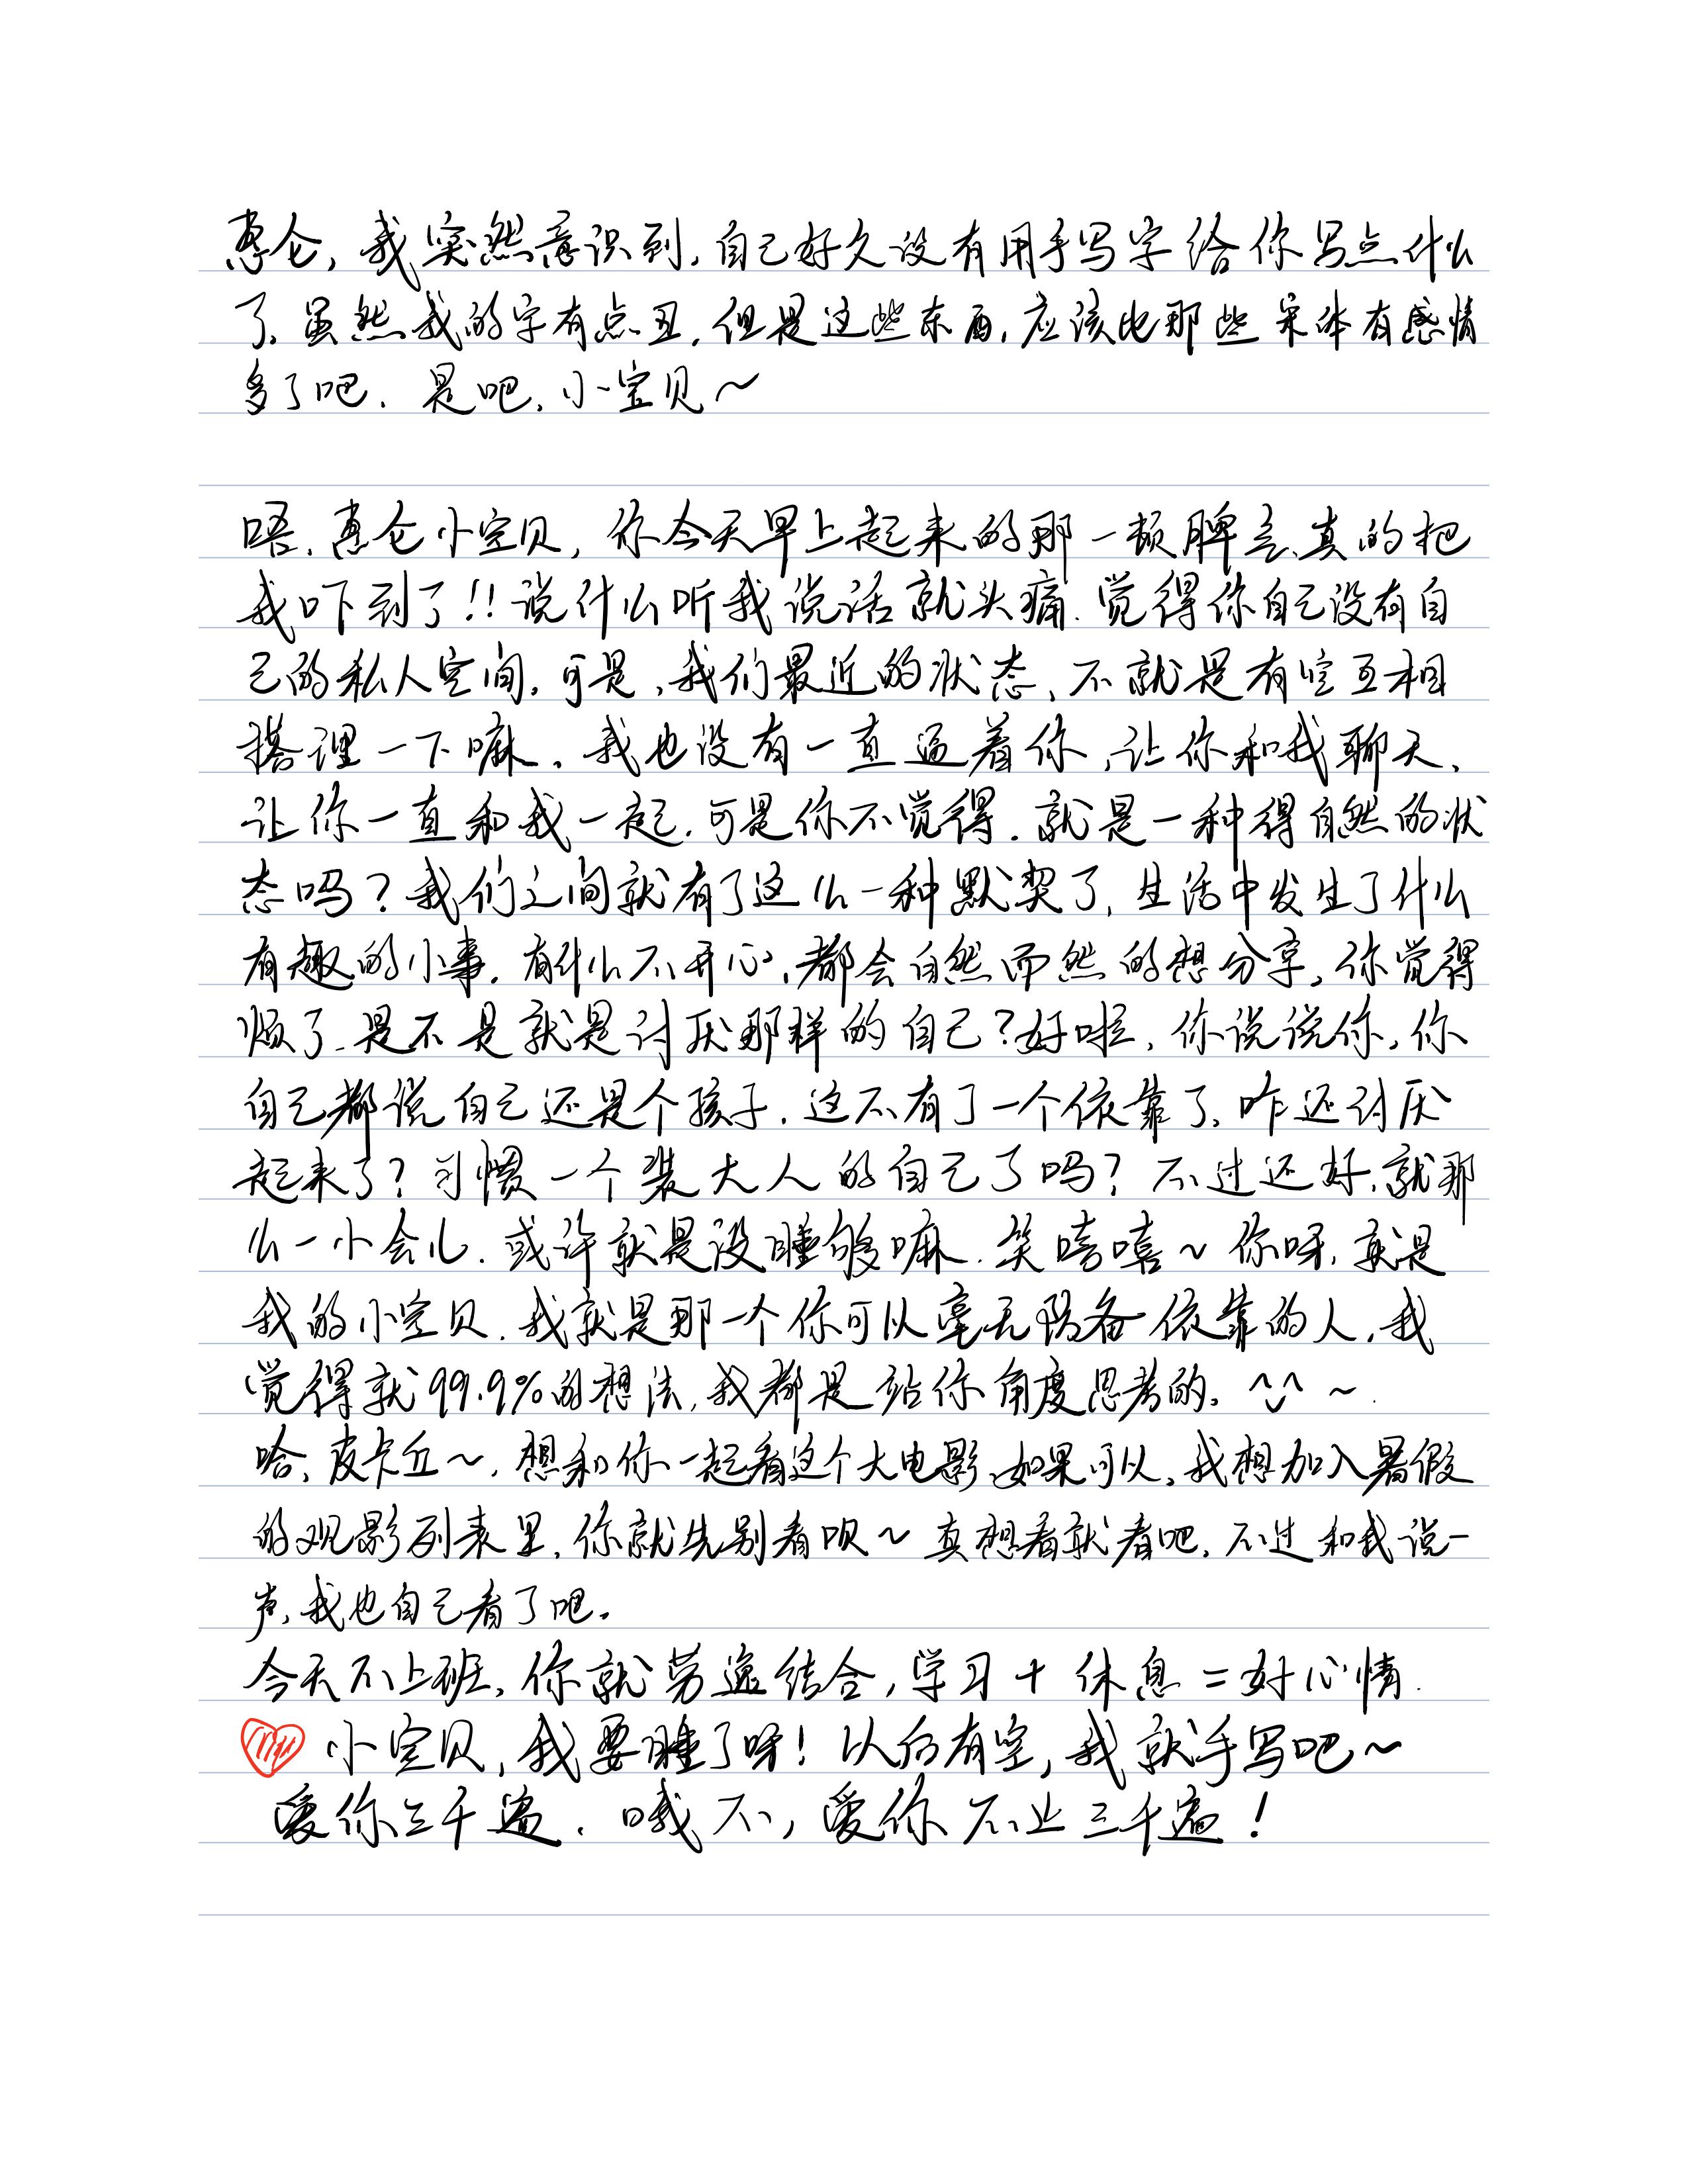 惠仑，我突然意识到，自己好久没有用手写字给你写点什么
了，虽然我的字有点丑，但是这些东西，应该比那些宋体有感情
多了吧，是吧，小宝贝～
唔，惠仑小宝贝，你今天早上起来的那一顿脾气，真的把
我吓到了！！说什么听我说话就头痛，觉得你自己没有自
己的私人空间。可是，我们最近的状态，不就是有空互相
搭理一下嘛，我也没有一直逼着你，让你和我聊天，
让你一直和我一起，可是你不觉得，就是一种得自然的状
态吗？我们之间就有了这么一种默契了，生活中发生了什么
有趣的小事，有什么不开心，都会自然而然的想分享。你觉得
烦了，是不是就是讨厌那样的自己？好啦，你说说你，你
自己都说自己还是个孩子，这不有了一个依靠了，咋还讨厌
起来了？习惯一个装大人的自己了吗？不过还好，就那
么一小会儿，或许就是没睡够嘛，笑嘻嘻～你呀，就是
我的小宝贝，我就是那一个你可以毫无防备依靠的人，我
觉得就99.9%的想法，我都是站你角度思考的。^◡^～
哈，皮卡丘～，想和你一起看这个大电影，如果可以，我想加入暑假
的观影列表里，你就先别看呗～真想看就看吧，不过和我说一
声，我也自己看了吧。
今天不上班，你就劳逸结合，学习＋休息＝好心情.
小宝贝，我要睡了呀！以后有空，我就手写吧～
爱你三千遍，哦不，爱你不止三千遍！